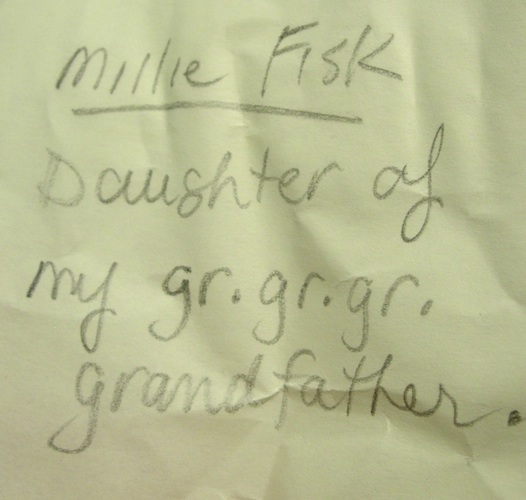 Millie Fisk
Daughter of
my gr.gr.gr.
grandfather.